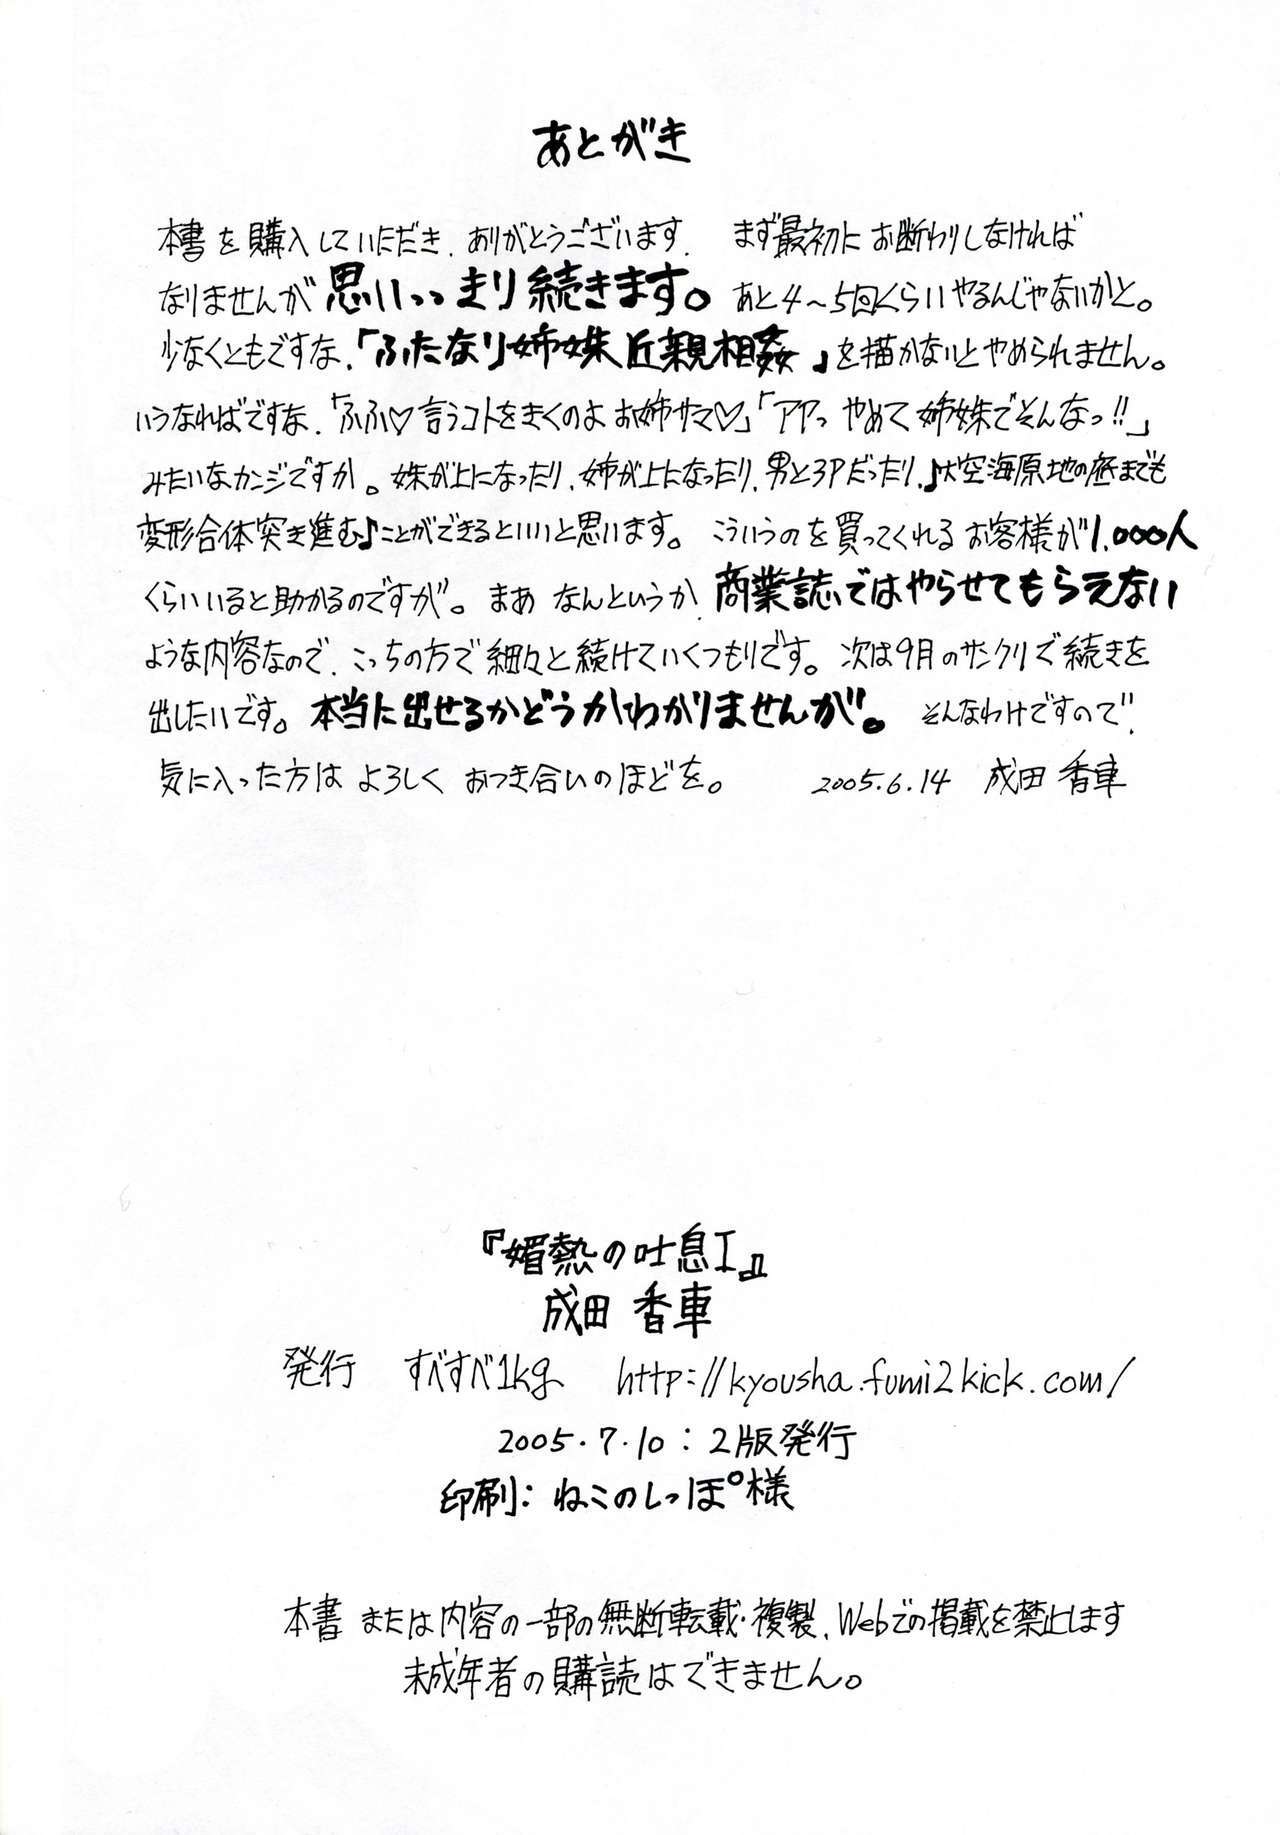 あとがき
本書を購入していただき、ありがとうございます。 まず最初にお断わりしなければ
なりませんが思いっっきり続きます。あと4〜5回くらいやるんじゃないかと。
少なくともですな、「ふたなり姉妹近親相姦」を描かないとやめられません。
いうなればですな、「ふふ♡言うコトをきくのよお姉サマ♡」「アアっ やめて 姉妹でそんなっ!!」
みたいなカンジですか。妹が上になったり、姉が上になったり、男と3Pだったり、♪大空海原地の底までも
変形合体突き進む♪ことができるといいと思います。 こういうのを買ってくれるお客様が1,000人
くらいいると助かるのですが。まあ なんというか、商業誌ではやらせてもらえない
ような内容なので、こっちの方で細々と続けていくつもりです。次は9月のサンクリで続きを
出したいです。本当に出せるかどうかわかりませんが。 そんなわけですので、
気に入った方は よろしく おつき合いのほどを。 2005.6.14 成田 香車
『媚熱の吐息I』
成田 香車
発行 すべすべ1kg http://kyousha.fumi2kick.com/
2005.7.10:2版発行
印刷:ねこのしっぽ様
本書 または内容の一部の無断転載・複製、Webでの掲載を禁止します
未成年者の購読はできません。